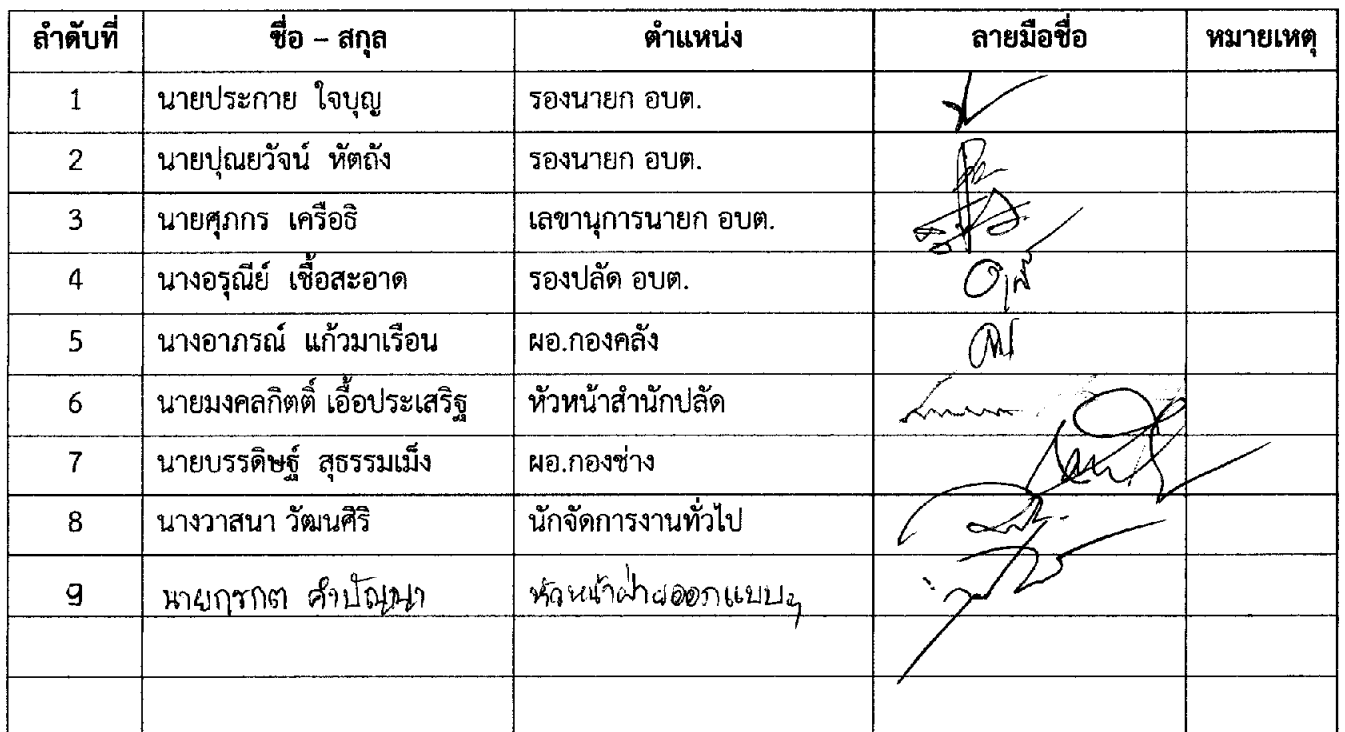 ลำดับที่ ชื่อ – สกุล ตำแหน่ง ลายมือชื่อ หมายเหตุ
1 นายประกาย ใจบุญ รองนายก อบต.
2 นายปุณยวัจน์ หัตถัง รองนายก อบต.
3 นายศุภกร เครือธิ เลขานุการนายก อบต.
4 นางอรุณีย์ เชื้อสะอาด รองปลัด อบต.
5 นางอาภรณ์ แก้วมาเรือน ผอ.กองคลัง
6 นายมงคลกิตติ์ เอื้อประเสริฐ หัวหน้าสำนักปลัด
7 นายบรรดิษฐ์ สุธรรมเม็ง ผอ.กองช่าง
8 นางวาสนา วัฒนศิริ นักจัดการงานทั่วไป
9 นายกรกต คำปัญญา หัวหน้าฝ่ายออกแบบฯ